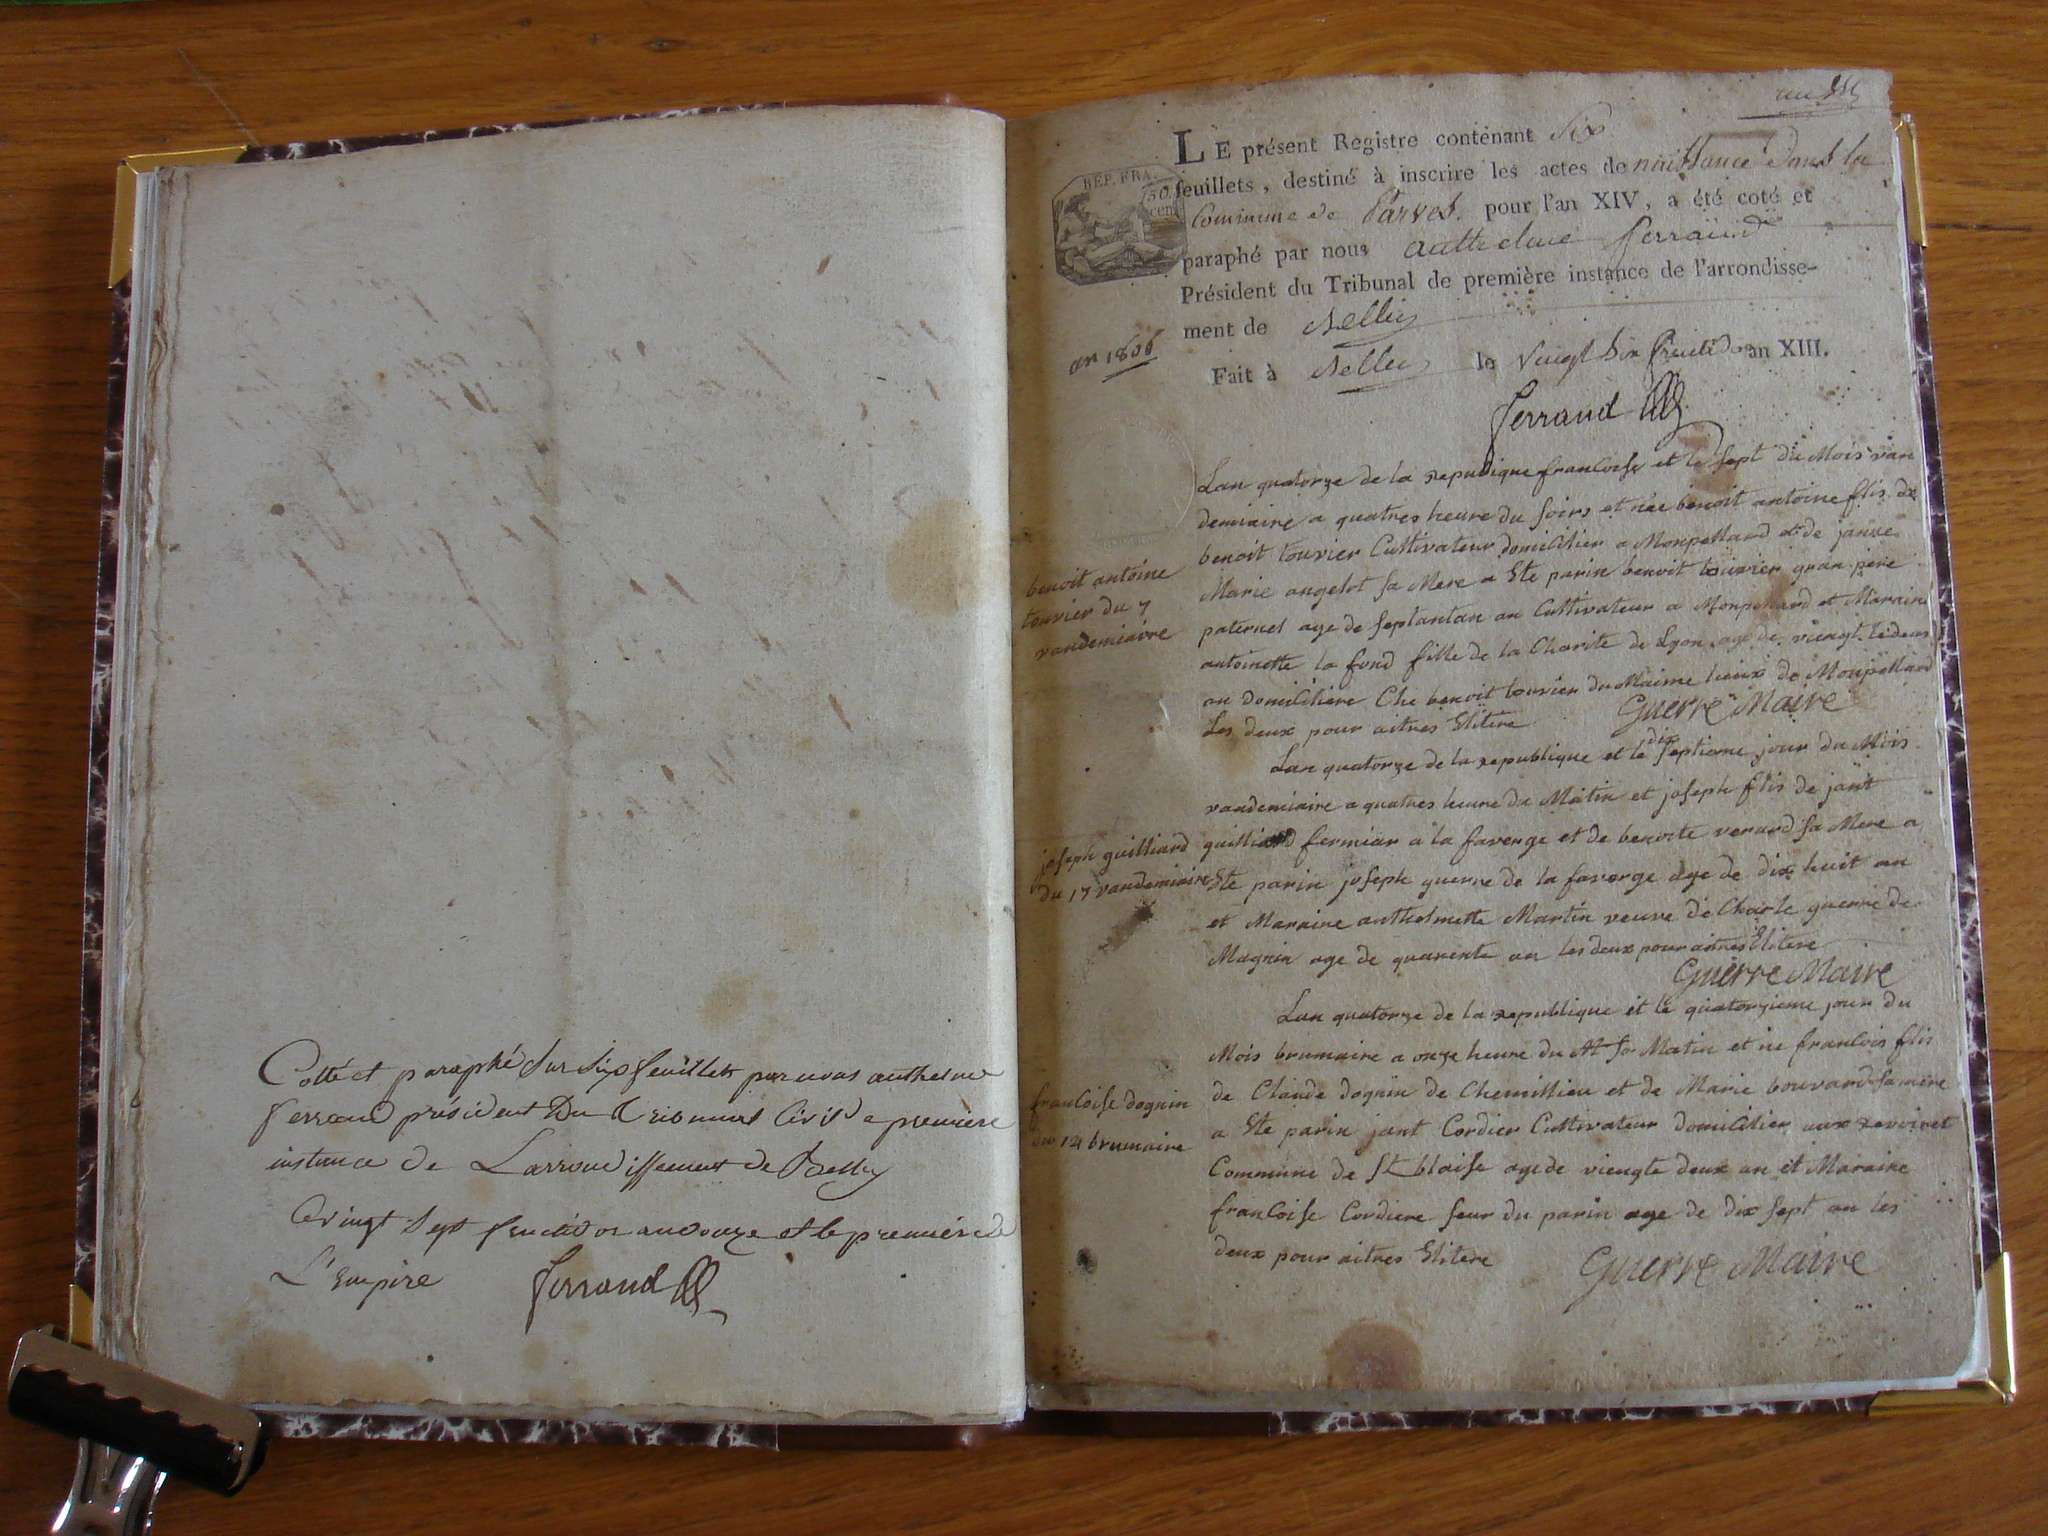 Cotté et paraphé Sur Six feuillets par nous anthelme
ferrand président Du Tribunal Civil e premiere
instance de Larrondissement de Belley
Ce vingt Sept fructidor an douze et le premier de
L'Empire ferrand
an XIV
LE présent Registre contenant Six
feuillets, destiné à inscrire les actes de naissance Dans la
Commune de Parves pour l'an XIV, a été coté et
paraphé par nous anthelme ferrand
Président du Tribunal de première instance de l'arrondisse-
ment de Belley
Fait à Belley le vingt Six fructid. an XIII.
ferrand
REP. FRA.
50
cen
an 1806
benoit antoine
touvier du 7
vandemiaire
Lan quatorze de la republique francoise et le sept du Mois van
demiaire a quatres heure du soirs et née benoit antoine flis de
benoit touvier Cultivateur domicilier a Monpellard et de janne
Marie angelot sa Mere a Ete parin benoit touvier gran pere
paternel age de septantan an Cultivateur a Monpellard et Maraine
antoinette la fond fille de la Charite de Lyon age de viengt te deux
an domiciliere Che benoit touvier du Maime lieux de Monpellard
Les deux pour aitres Elitere Guerre Maire
joseph guilliard
du 17 vandemiaire
Lan quatorze de la republique et le dix septieme jour du Mois
vandemiaire a quatres heure du Matin et joseph flis de jant
guilliard fermier a la faverge et de benoite verard sa Mere a
Ete parin joseph guerre de la faverge age de dix huit an
et Maraine anthelmette Martin veuve de Charle guerre de
Magnin age de quarente an les deux pour aitres Elitere
Guerre Maire
francoise dognin
du 14 brumaire
Lan quatorze de la republique et le quatorzieme jour du
Mois brumaire a onze heure du Matin et ne francois flis
de Claude dognin de Chemillieu et de Marie bouvard sa mere
a Ete parin jant Cordier Cultivateur domicilier aux revoiret
Commune de St blaise age de viengte deux an et Maraine
francoise Cordiere seur du parin age de dix sept an les
deux pour aitres Elitere Guerre Maire